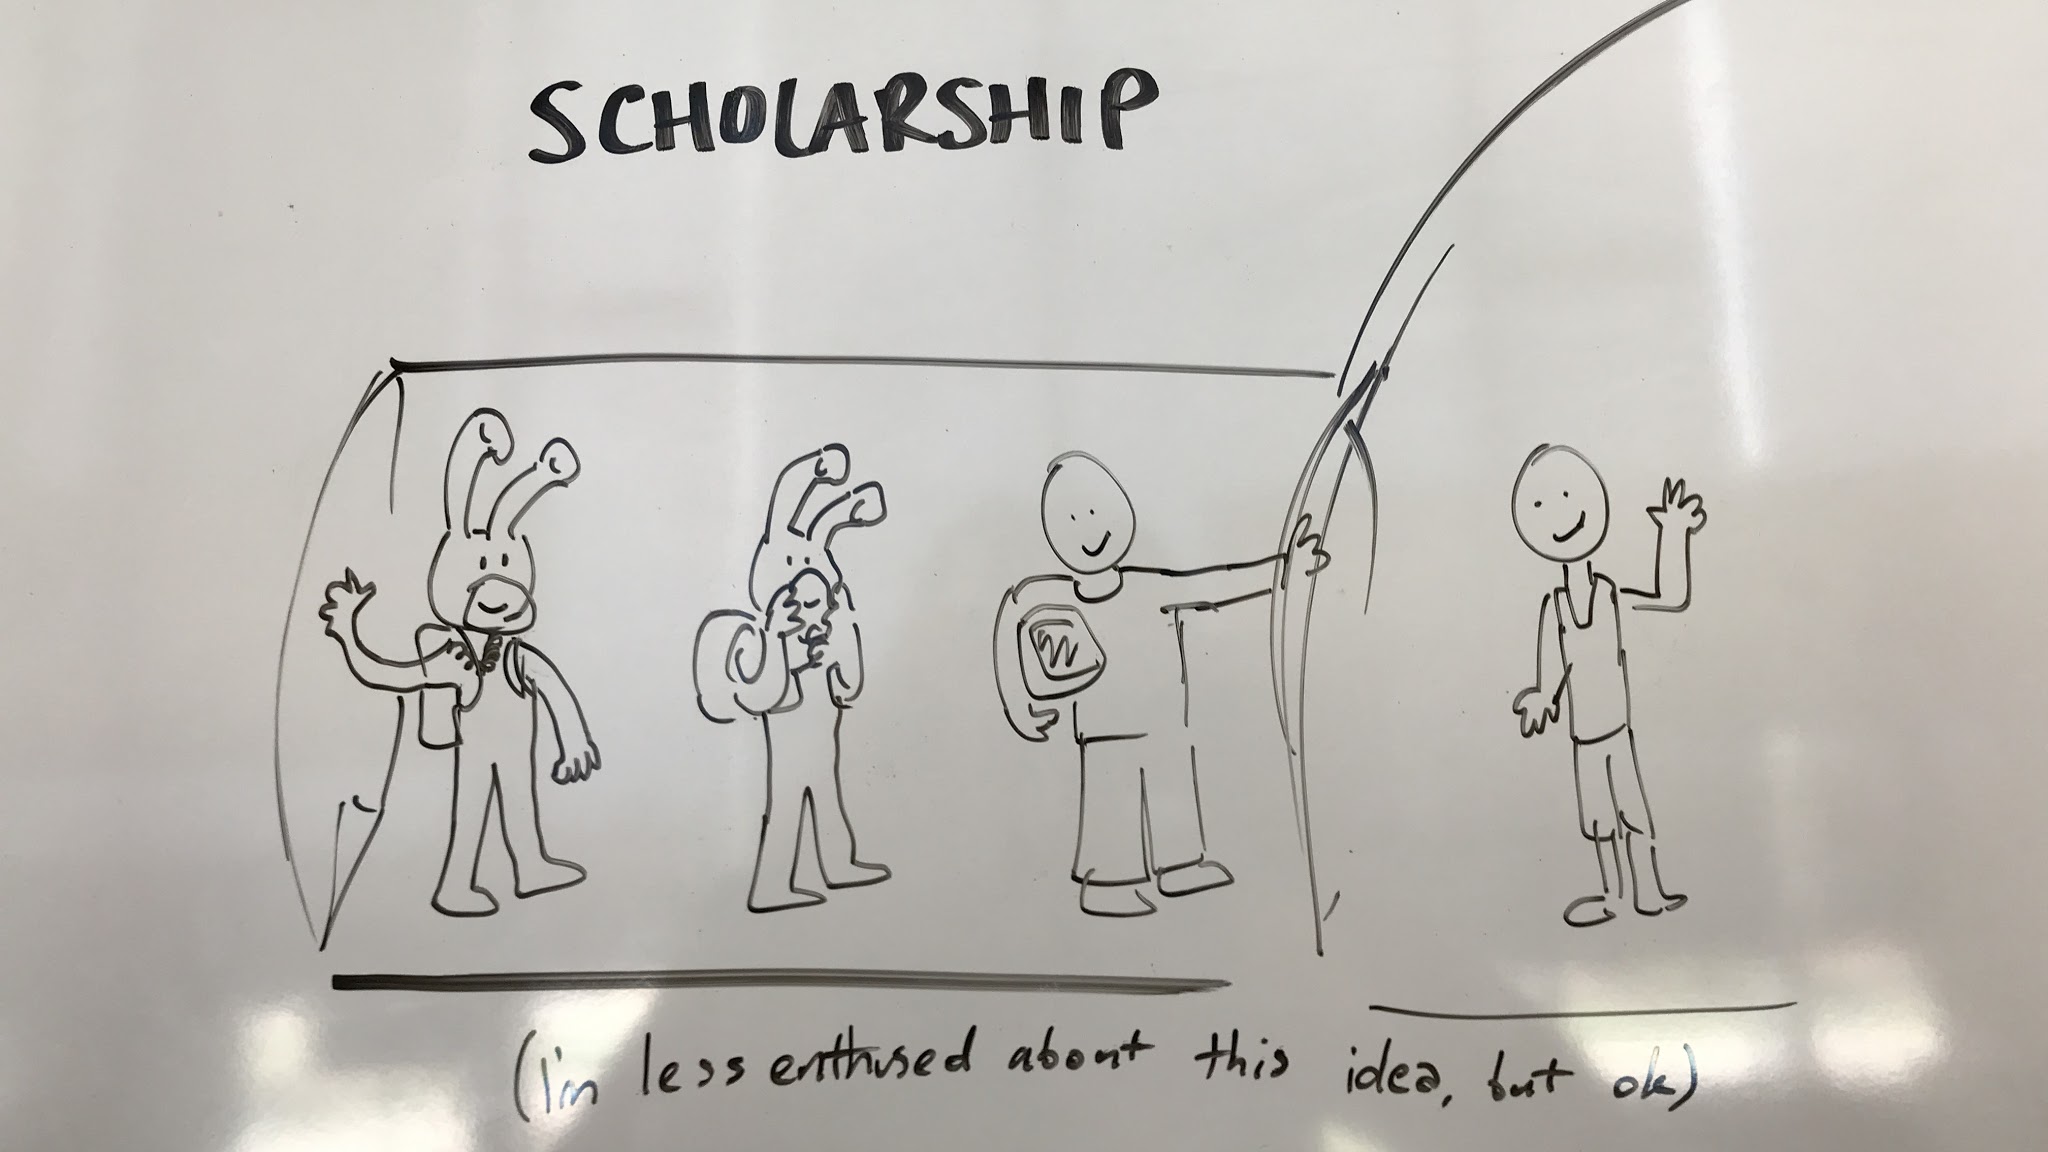 SCHOLARSHIP
(I'm less enthused about this idea, but ok)